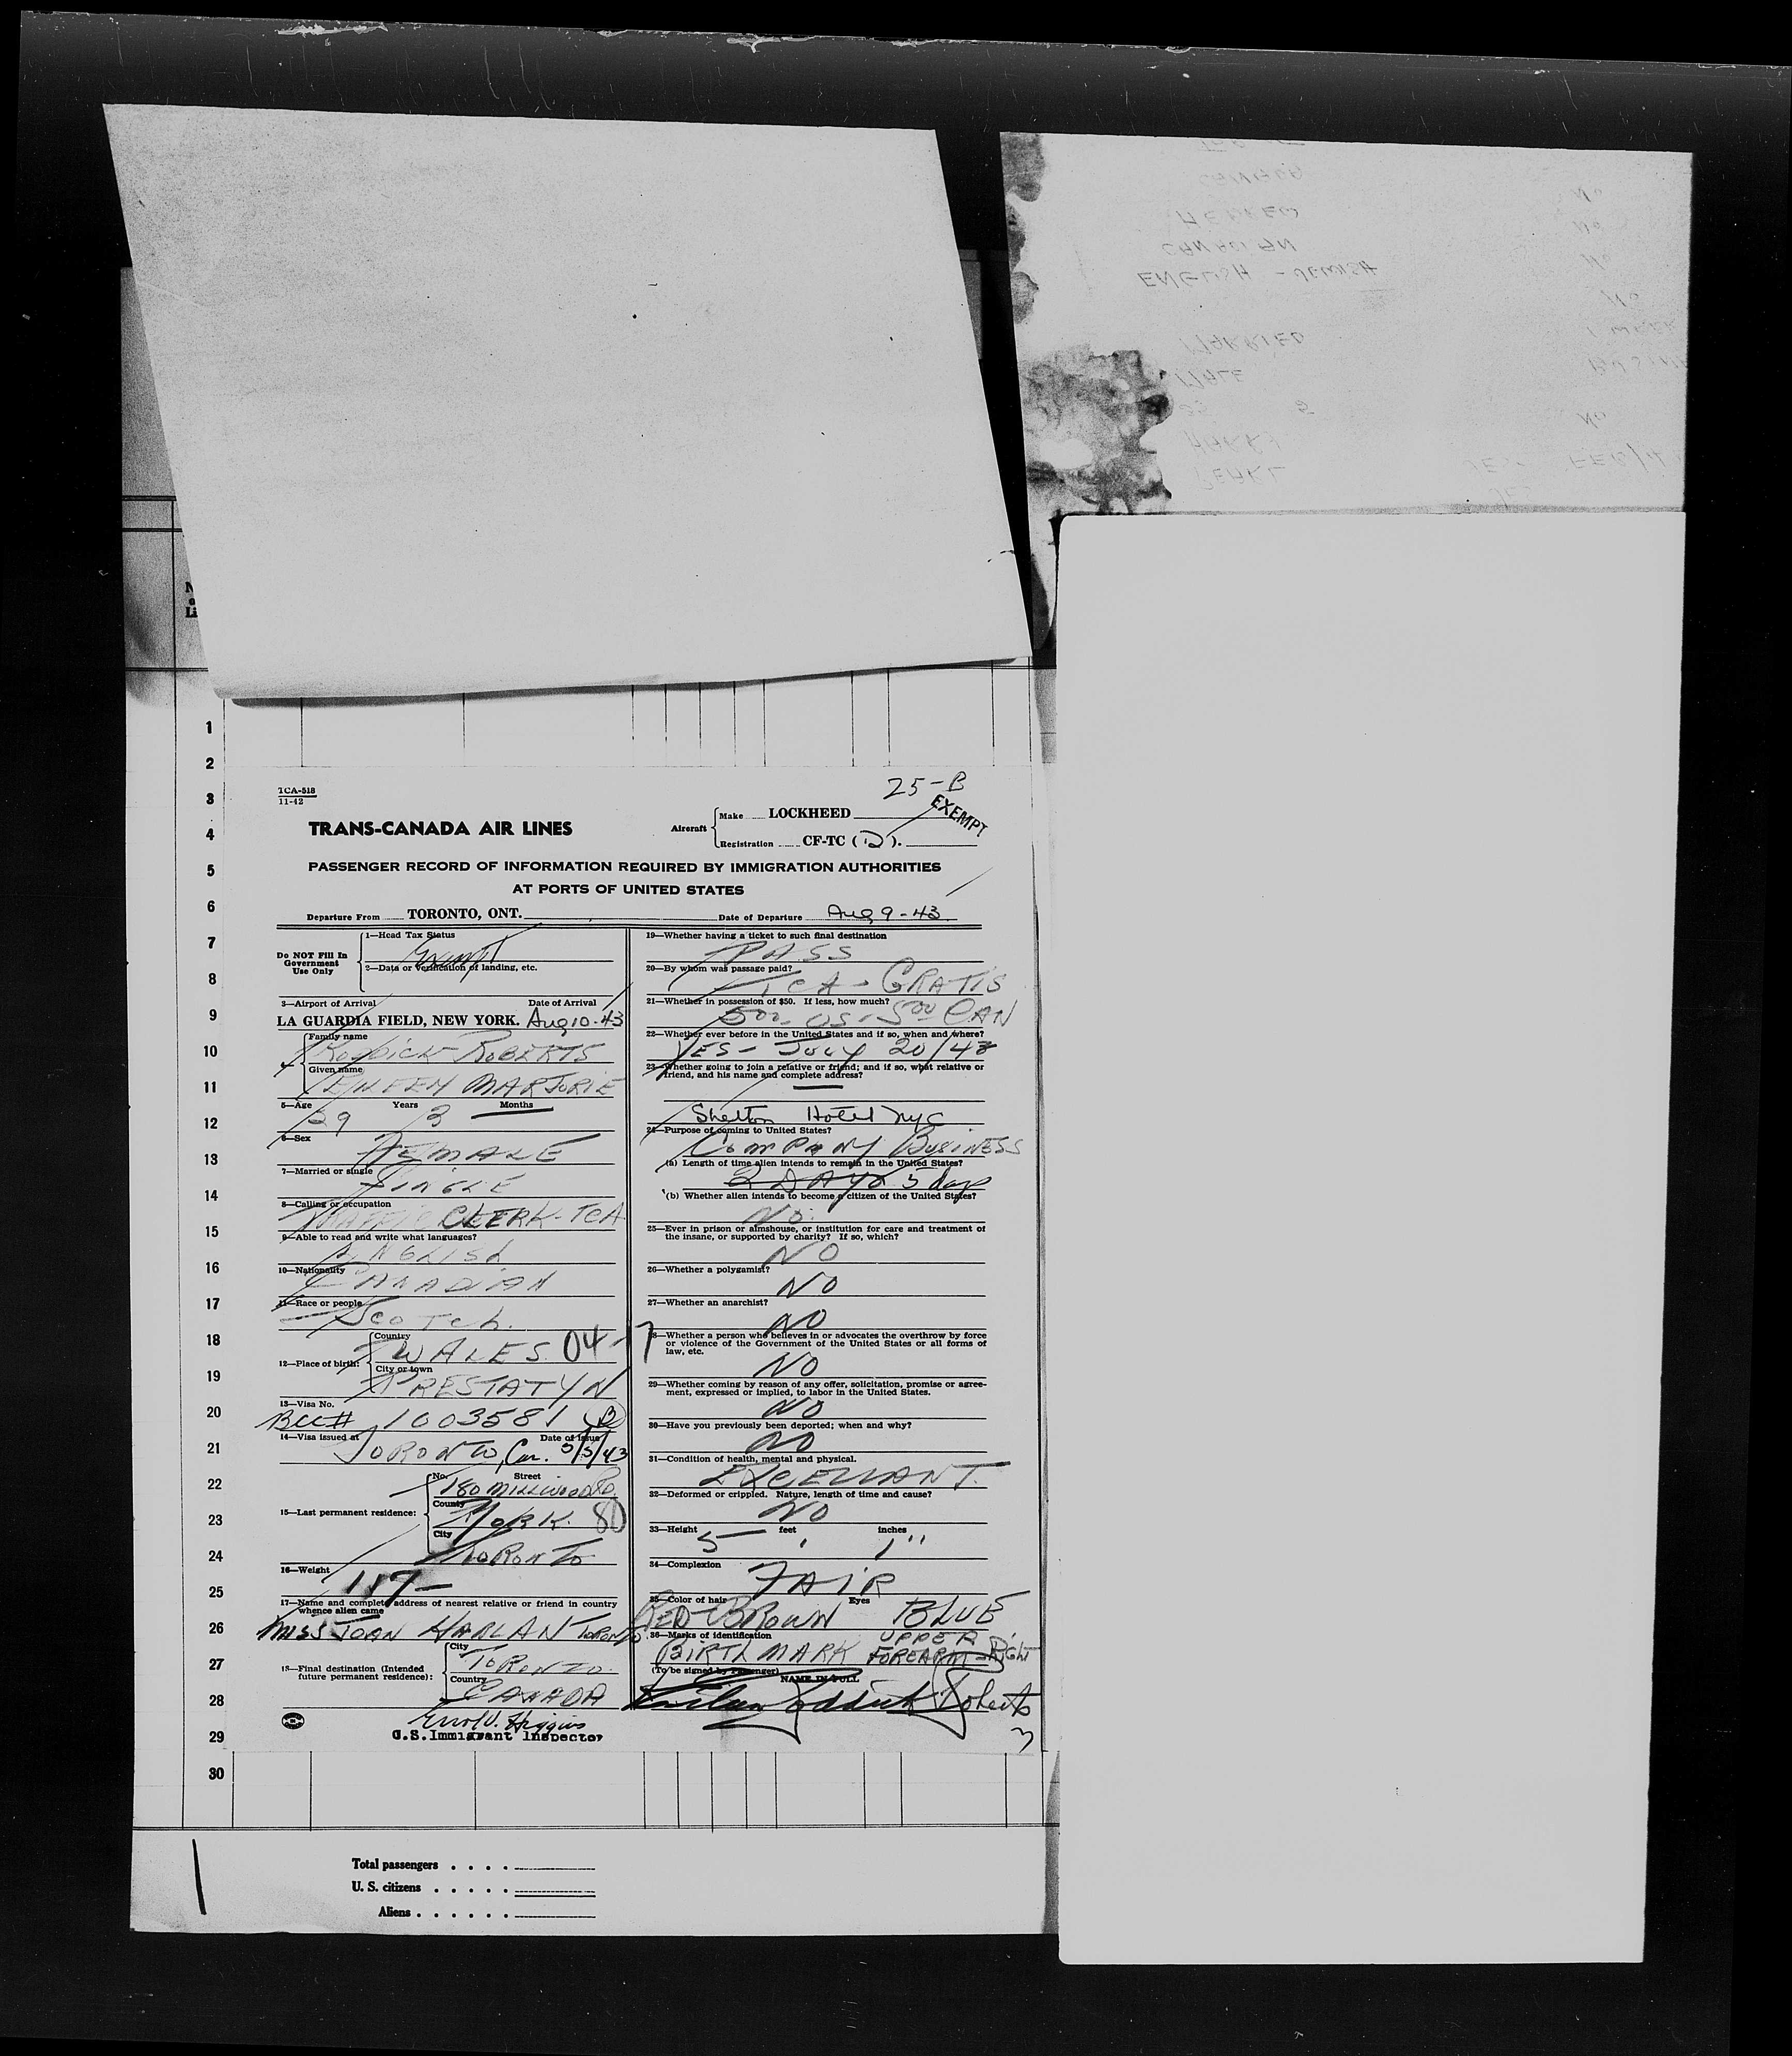 TCA-518
11-42
25-B
EXEMPT
TRANS-CANADA AIR LINES
Aircraft
Make LOCKHEED
Registration CF-TC (D).
PASSENGER RECORD OF INFORMATION REQUIRED BY IMMIGRATION AUTHORITIES
AT PORTS OF UNITED STATES
Departure From TORONTO, ONT. Date of Departure Aug 9-43
Do NOT Fill In
Government
Use Only
1—Head Tax Status
Exempt
2—Data or verification of landing, etc.
3—Airport of Arrival Date of Arrival
LA GUARDIA FIELD, NEW YORK. Aug 10-43
Family name
RODDICK ROBERTS
Given name
EILEEN MARJORIE
5—Age Years Months
29 3
6—Sex
FEMALE
7—Married or single
SINGLE
8—Calling or occupation
TRAFFIC CLERK-TCA
9—Able to read and write what languages?
ENGLISH
10—Nationality
CANADIAN
11—Race or people
SCOTCH.
12—Place of birth:
Country
WALES 04-7
City or town
PRESTATYN
13—Visa No.
BCC# 1003581 B
14—Visa issued at Date of issue
TORONTO, Can. 5/5/43
15—Last permanent residence:
No. Street
180 MILLWOOD RD.
County
YORK. 80
City
TORONTO
16—Weight
117—
17—Name and complete address of nearest relative or friend in country
whence alien came
MISS JOAN HARLAN TORONTO
18—Final destination (Intended
future permanent residence):
City
TORONTO.
Country
CANADA
Errol V. Higgins
U.S. Immigrant Inspector
19—Whether having a ticket to such final destination
PASS
20—By whom was passage paid?
TCA - GRATIS
21—Whether in possession of $50. If less, how much?
500 US - 500 CAN
22—Whether ever before in the United States and if so, when and where?
YES - JULY 20/43
23—Whether going to join a relative or friend; and if so, what relative or
friend, and his name and complete address?
Shelton Hotel NYC
24—Purpose of coming to United States?
COMPANY BUSINESS
(a) Length of time alien intends to remain in the United States?
2 DAYS 5 days
(b) Whether alien intends to become a citizen of the United States?
NO.
25—Ever in prison or almshouse, or institution for care and treatment of
the insane, or supported by charity? If so, which?
NO
26—Whether a polygamist?
NO
27—Whether an anarchist?
NO
28—Whether a person who believes in or advocates the overthrow by force
or violence of the Government of the United States or all forms of
law, etc.
NO
29—Whether coming by reason of any offer, solicitation, promise or agree-
ment, expressed or implied, to labor in the United States.
NO
30—Have you previously been deported; when and why?
NO
31—Condition of health, mental and physical.
EXCELLANT.
32—Deformed or crippled. Nature, length of time and cause?
NO
33—Height feet inches
5 ' 1"
34—Complexion
FAIR
35—Color of hair Eyes
RED BROWN BLUE
36—Marks of identification
BIRTH MARK UPPER FOREARM - Right
(To be signed by Passenger) NAME IN FULL
Eileen Roddick Roberts
3
1
2
3
4
5
6
7
8
9
10
11
12
13
14
15
16
17
18
19
20
21
22
23
24
25
26
27
28
29
30
Total passengers
U. S. citizens
Aliens
CANADA
HEBREW
CANADIAN
ENGLISH - JEWISH
MARRIED
MALE
HARRY
PEARL